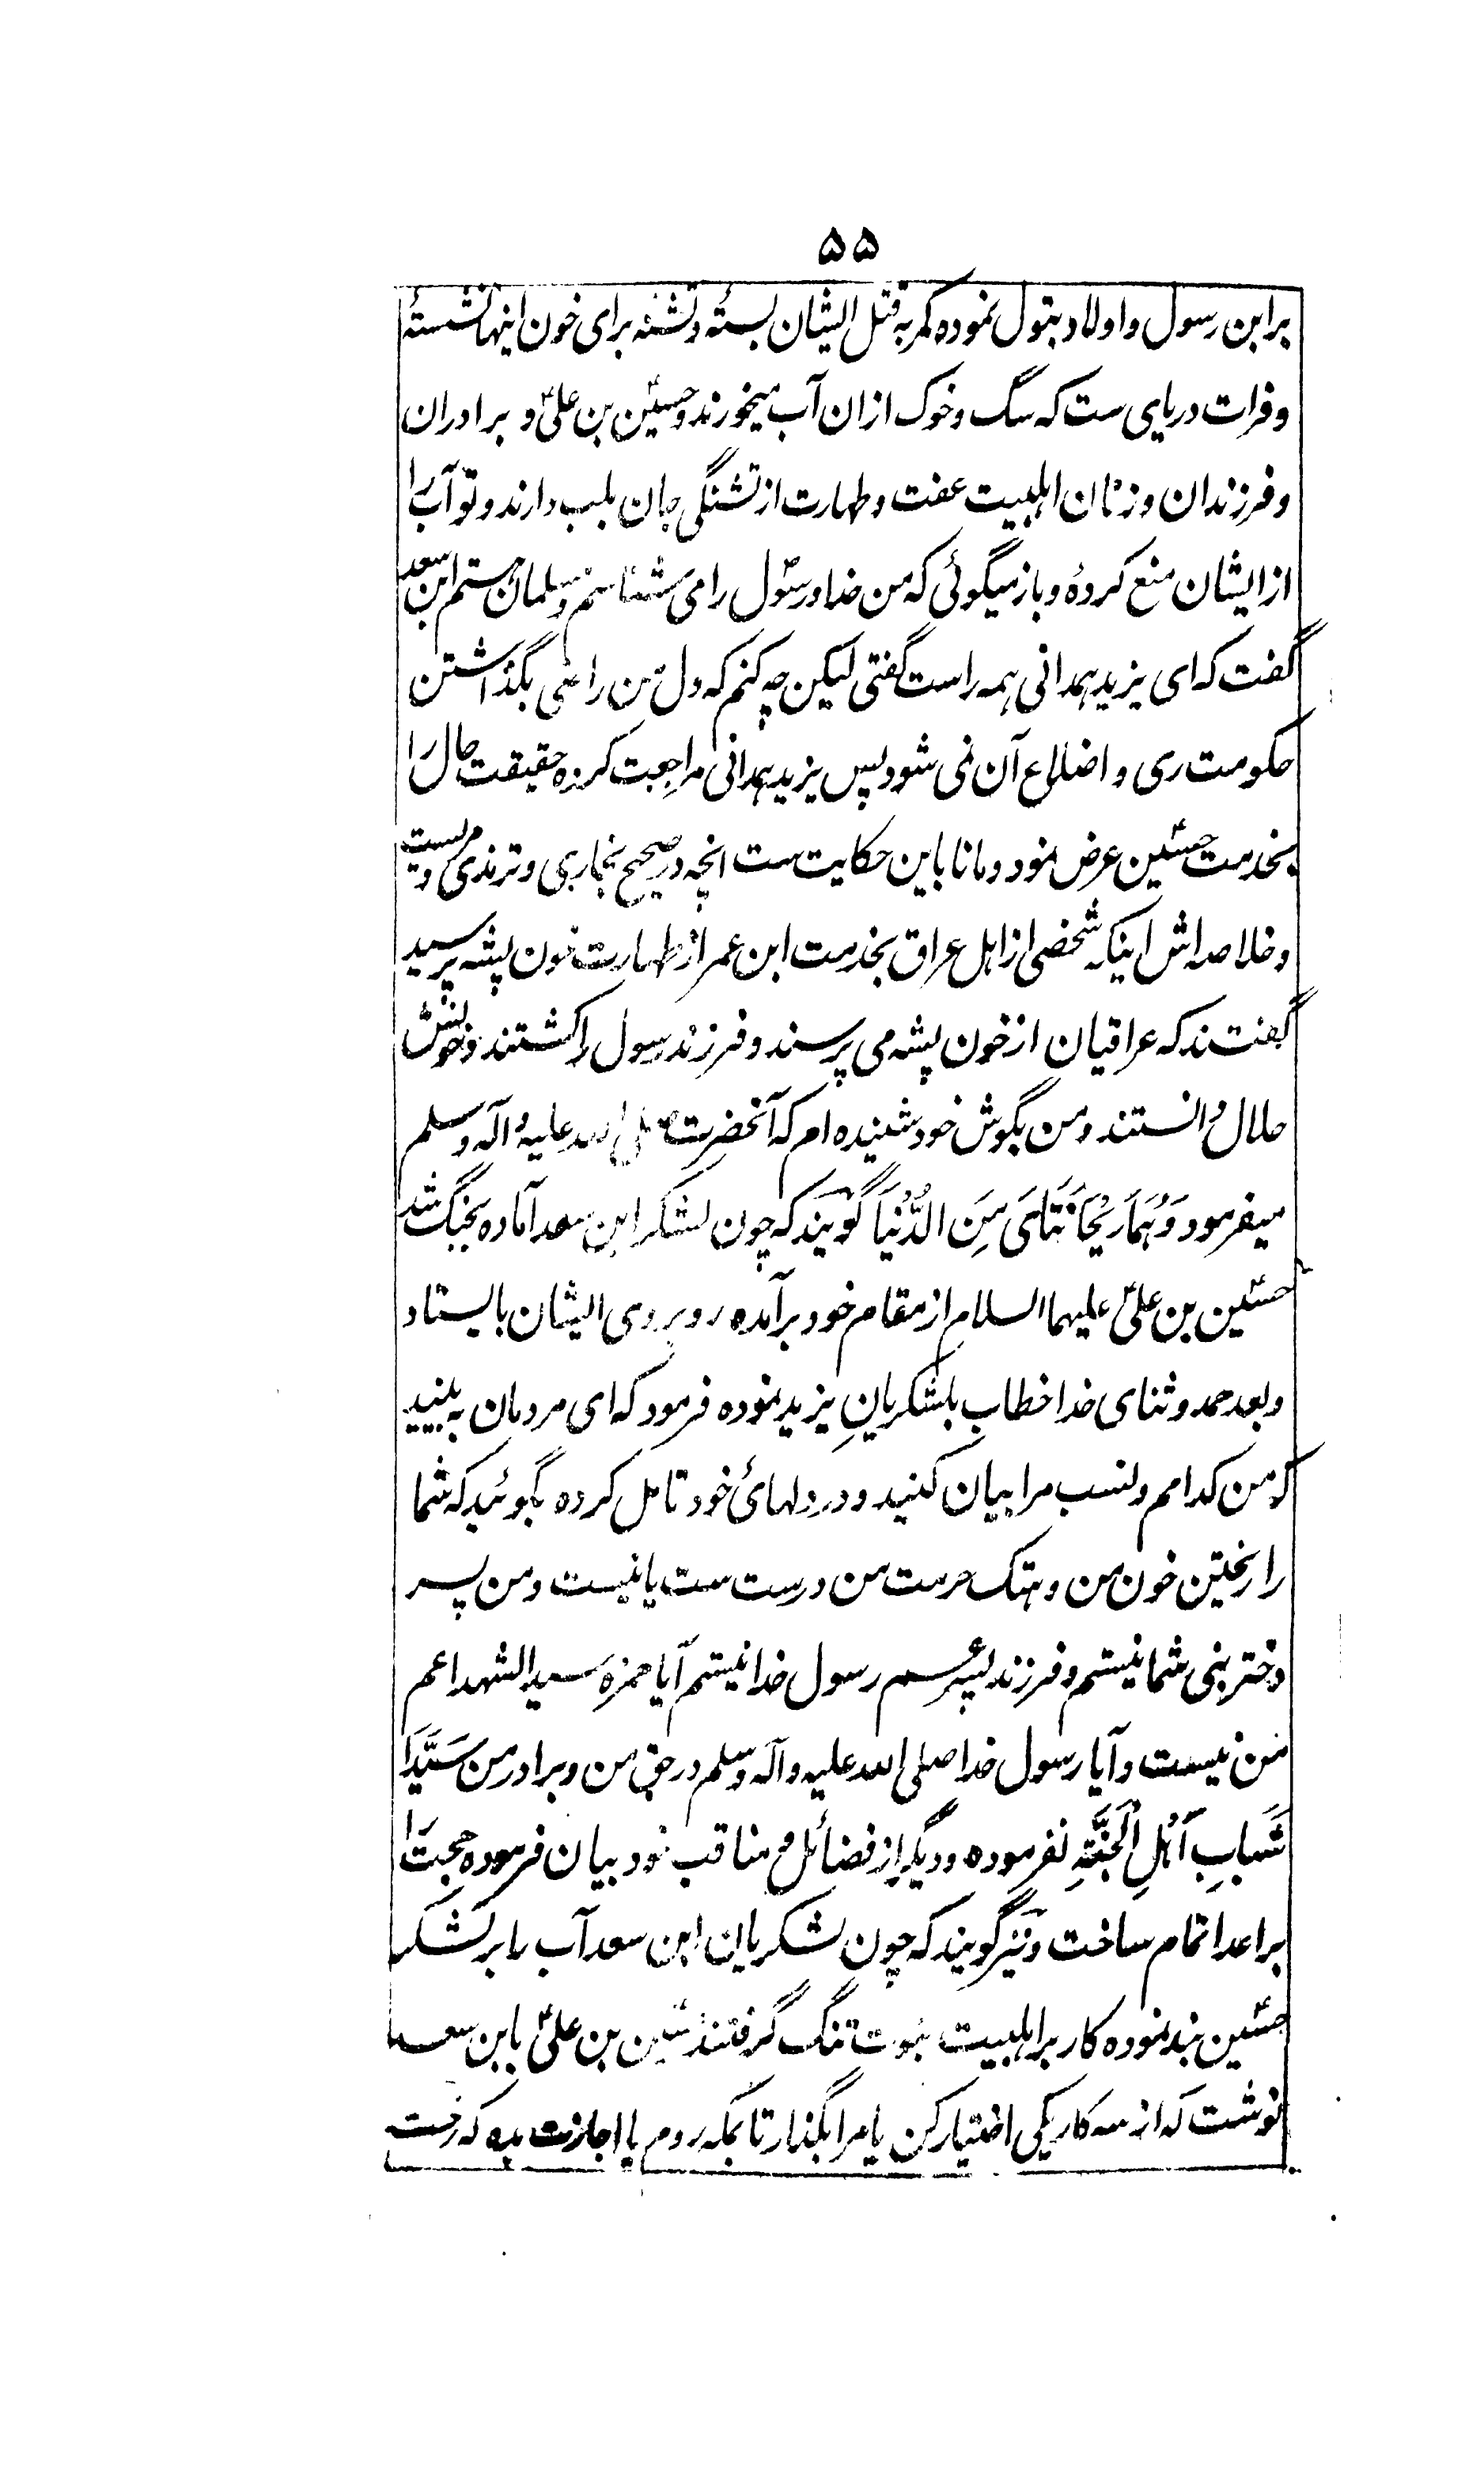 ۵۵
بر ابن رسول و اولاد بتول نموده کمر به قتل ایشان بستهٔ و تشنه برای خون اینها نشستهٔ
و فرات دریای ست که سگ و خوک ازان آب میخورند و حسینؑ بن علیؑ و برادران
و فرزندان و زنان اهلبیت عفت و طهارت از تشنگی جان بلب دارند و تو آب را
از ایشان منع کردهٔ و باز میگوئی که من خدا و رسولؐ را می شناسم و مسلمان هستم ابن سعد
گفت که ای یزید همدانی همه راست گفتی لیکن چه کنم که دل من راضی بگذاشتن
حکومت ری و اضلاع آن نمی شود پس یزید همدانی مراجعت کرده حقیقت حال را
بخدمت حسینؑ عرض نمود و مانا باین حکایت ست انچه در صحیح بخاری و ترمذی مرویست
و خلاصه اش اینکه شخصی از اهل عراق بخدمت ابن عمر از طهارت خون پشه پرسید
گفتند که عراقیان از خون پشه می پرسند و فرزند رسول را کشتند و خونش
حلال دانستند و من بگوش خود شنیده ام که آنحضرت صلی الله علیه و آله و سلم
میفرمود وَهُمَا رَیْحَانَتَایَ مِنَ الدُّنْیَا گویند که چون لشکر ابن سعد آماده بجنگ شد
حسینؑ بن علیؑ علیهما السلام از مقام خود برآمده روبروی ایشان بایستاد
و بعد حمد و ثنای خدا خطاب بلشکریانِ یزید نموده فرمود که ای مردمان به بینید
که من کدامم و نسب مرا بیان کنید و در دلهائ خود تامل کرده بگوئید که شما
را ریختن خون من و هتک حرمت من درست ست یا نیست و من پسر
دختر بنی شما نیستم و فرزند پسر عم رسول خدا نیستم آیا حمزه سید الشهدا عم
من نیست و آیا رسول خدا صلی الله علیه و آله و سلم در حق من و برادر من سَیِّدَا
شَبَابِ اَهْلِ الْجَنَّةِ نفرموده و دیگر از فضائل و مناقب خود بیان فرموده حجت را
بر اعدا تمام ساخت و نیز گویند که چون لشکریان ابن سعد آب را بر لشکر
حسینؑ بند نموده کار بر اهلبیت نبوت تنگ گرفتند حسین بن علیؑ بابن سعد
نوشت که از سه کار یکی اختیار کن یا مرا بگذار تا بمکه روم یا اجازت بده که